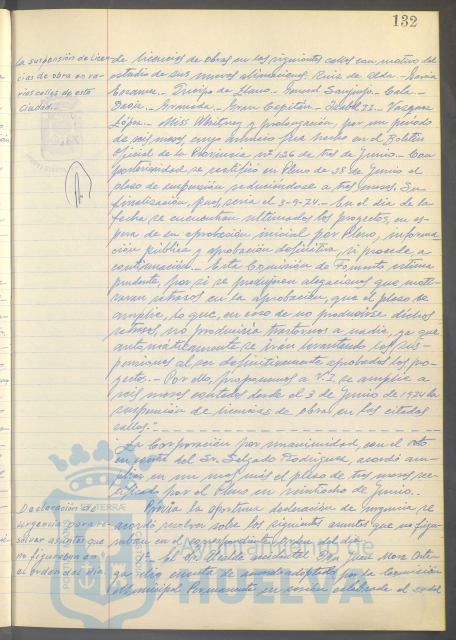 132
la suspensión de licen-
cias de obra en va-
rias calles de esta
Ciudad.-
de licencias de obras en las siguientes calles con motivo del
estudio de sus nuevas alineaciones: Ruiz de Alda.- María
Queipo de Llano.- General Sanjurjo.- Cala.-
Gran Capitán.- Isabel II.- Vázquez
López.- Miss Whitney y prolongación, por un período
de seis meses, cuyo anuncio fue hecho en el Boletín
Oficial de la Provincia nº 126 de tres de Junio.- Con
posterioridad se rectificó en Pleno de 28 de Junio el
plazo de suspensión reduciéndose a tres meses. Su
finalización, pues, sería el 3-9-74.- En el día de la
fecha se encuentran ultimados los proyectos, en es-
pera de su aprobación inicial por Pleno, informa-
ción pública y aprobación definitiva, si procede a
continuación.- Esta Comisión de Fomento estima
prudente, por si se produjeran alegaciones que moti-
varan retrasos en la aprobación, que el plazo se
amplíe, lo que, en caso de no producirse dichos
retrasos, no produciría trastornos a nadie, ya que
automáticamente se irán levantando las sus-
pensiones al ser definitivamente aprobados los pro-
yectos.- Por ello, proponemos a V.I. se amplíe a
seis meses contados desde el 3 de Junio de 1974 la
suspensión de licencias de obra en las citadas
calles."
La Corporación por mayoría, con el voto
en contra del Sr. Salgado Rodríguez, acordó am-
pliar en un mes más el plazo de tres meses rec-
tificado por el Pleno en veintiocho de Junio.
Declaración de
urgencia para re-
solver asuntos que
no figuraban en
el orden del día.
Previa la oportuna declaración de urgencia se
acordó resolver sobre los siguientes asuntos que no figu-
raban en el correspondiente orden del día.
1º.- el Sr. Alcalde Don Juan Mora Orte-
ga dio cuenta de acuerdo adoptado por la Comisión
Municipal Permanente en sesión celebrada el
Ayuntamiento de
HUELVA